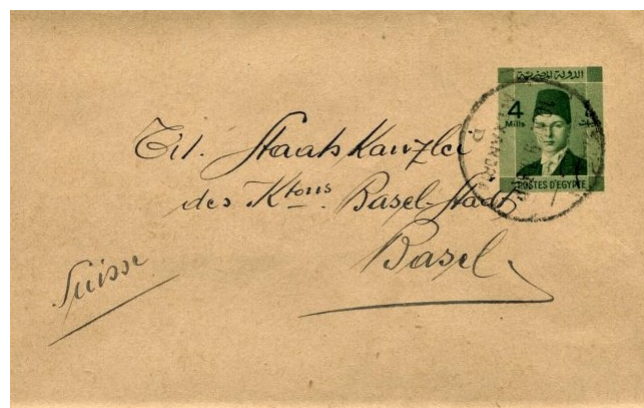 الدولة المصرية
4
Mills
POSTES D'EGYPTE
ALEXANDRI
D
Tit. Staatskanzlei
des Ktons. Basel-Stadt
Basel
Suisse